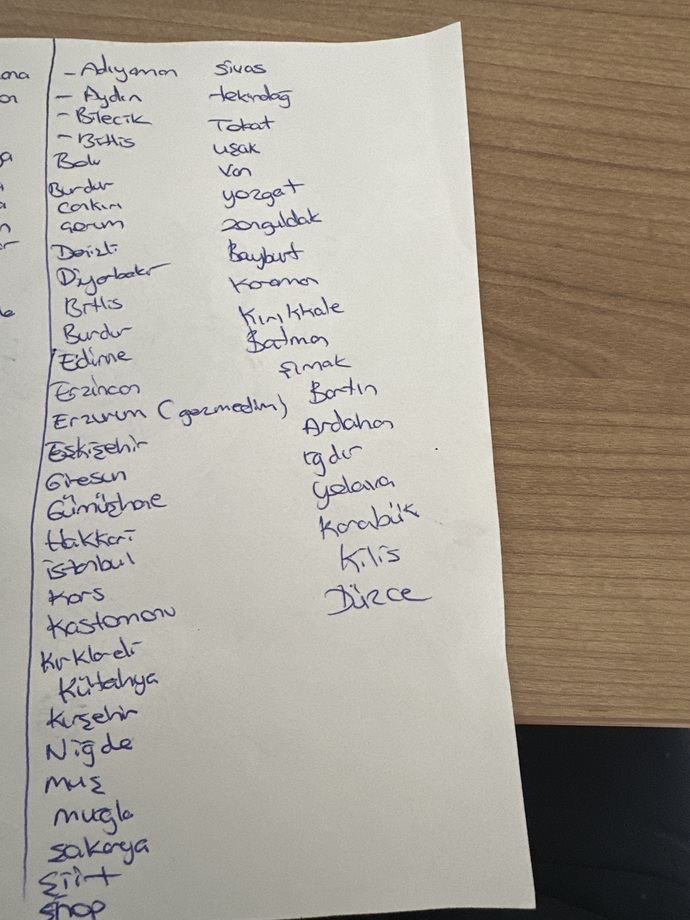 - Adıyaman
- Aydın
- Bilecik
- Bitlis
Bolu
Burdur
Çankırı
Çorum
Denizli
Diyarbakır
Bitlis
Burdur
Edirne
Erzincan
Erzurum (gezmedim)
Eskişehir
Giresun
Gümüşhane
Hakkari
istanbul
Kars
Kastamonu
Kırklareli
Kütahya
Kırşehir
Niğde
muş
muğla
sakarya
Siirt
sinop
Sivas
tekirdağ
Tokat
uşak
Van
yozgat
zonguldak
Bayburt
Karaman
Kırıkkale
Batman
şırnak
Bartın
Ardahan
ığdır
yalova
Karabük
Kilis
Düzce